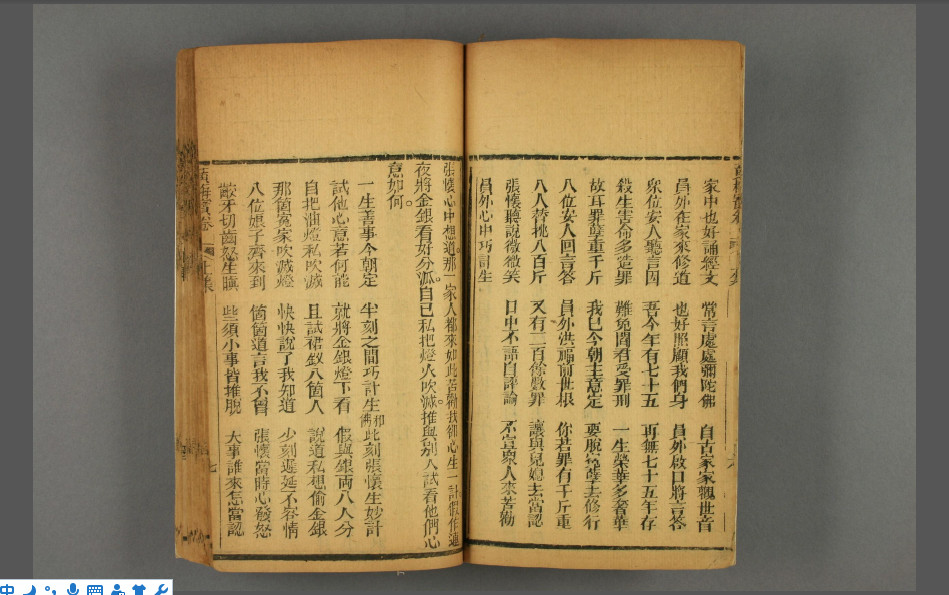 家中也好誦經文 常言處處彌陀佛 自古家家觀世音
員外在家來修道 也好照顧我們身 員外啟口將言答
眾位安人聽言因 吾今年有七十五 再無七十五年存
殺生害命多造罪 難免閻君受罪刑 一生榮華多奢華
故耳罪孽重千斤 我已今朝主意定 要脫冤孽去修行
八位安人回言答 員外洪福前世根 你若罪有千斤重
八人替挑八百斤 又有二百餘數罪 讓與兒媳去當認
張懷聽說微微笑 口中不語自評論 不宜眾人來苦勸
員外心中巧計生
張懷心中想道那一家人都來如此苦勸我卻心生一計假作連
夜將金銀看好分派自己私把燈火吹滅推與別人試看他們心
意如何
一生善事今朝定 半刻之間巧計生 此刻張懷生妙計
試他心意若何能 就將金銀燈下看 假與銀兩八人分
自把油燈私吹滅 且試裙釵八箇人 說道私想偷金銀
那箇冤家吹滅燈 快快說了我知道 少刻遲延不容情
八位娘子齊來到 箇箇道言我不曾 張懷當時心發怒
咬牙切齒怒生嗔 些須小事皆推脫 大事誰來怎當認
七
中